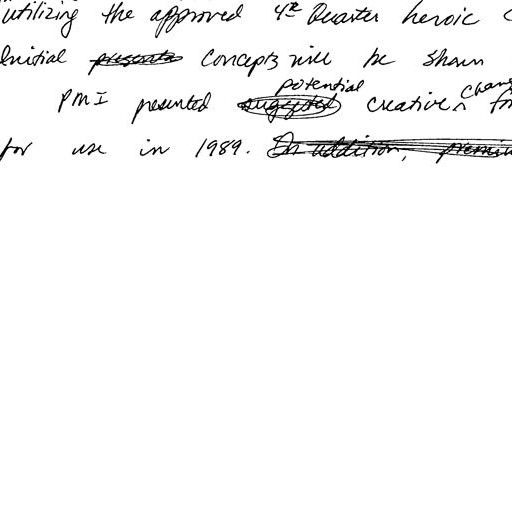 utilizing the approved 4th Quarter heroic
Initial presents Concepts will be shown
PMI presented suggested potential creative
for use in 1989. In addition,